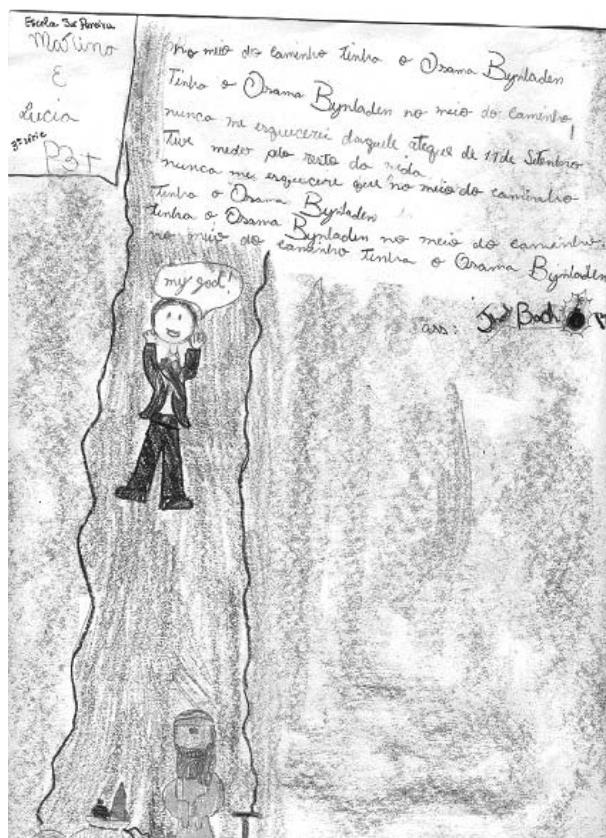 Escola 3x Pereira
Marino
E
Lucia
3ª série
P3+
no meio do caminho tinha o Osama Bynladen
Tinha o Osama Bynladen no meio do caminho!
nunca me esquecerei daquele ateque de 11 de Setembro
Tive medo pelo resto da vida
nunca me esquecere que no meio do caminho
tinha o Osama Bynladen
tinha o Osama Bynladen no meio do caminho
no meio do caminho tinha o Osama Bynladen
ass:
my god!